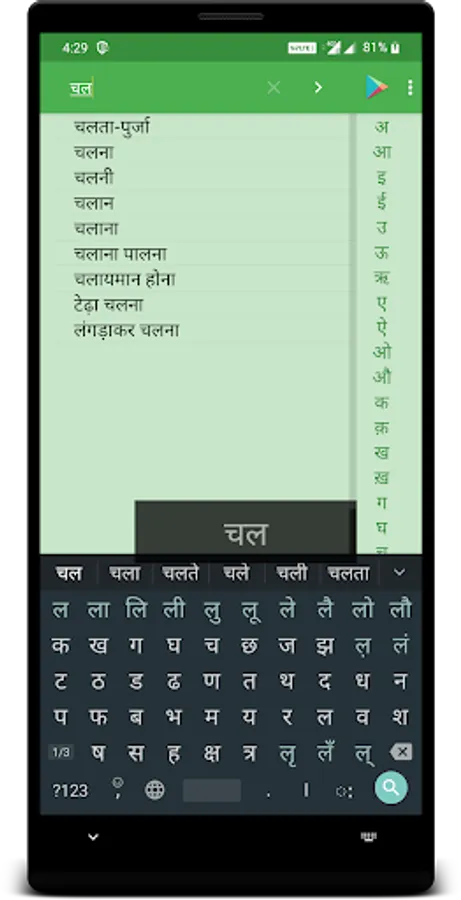 4:29 81%
चल
चलता-पुर्जा
चलना
चलनी
चलान
चलाना
चलाना पालना
चलायमान होना
टेढ़ा चलना
लंगड़ाकर चलना
अ
आ
इ
ई
उ
ऊ
ऋ
ए
ऐ
ओ
औ
क
क़
ख
ख़
ग
घ
चल
चल चला चलते चले चली चलता
ल ला लि ली लु लू ले लै लो लौ
क ख ग घ च छ ज झ ल़ लं
ट ठ ड ढ ण त थ द ध न
प फ ब भ म य र ल व श
1/3 ष स ह क्ष त्र लृ लँ ल्
?123 , . । ः